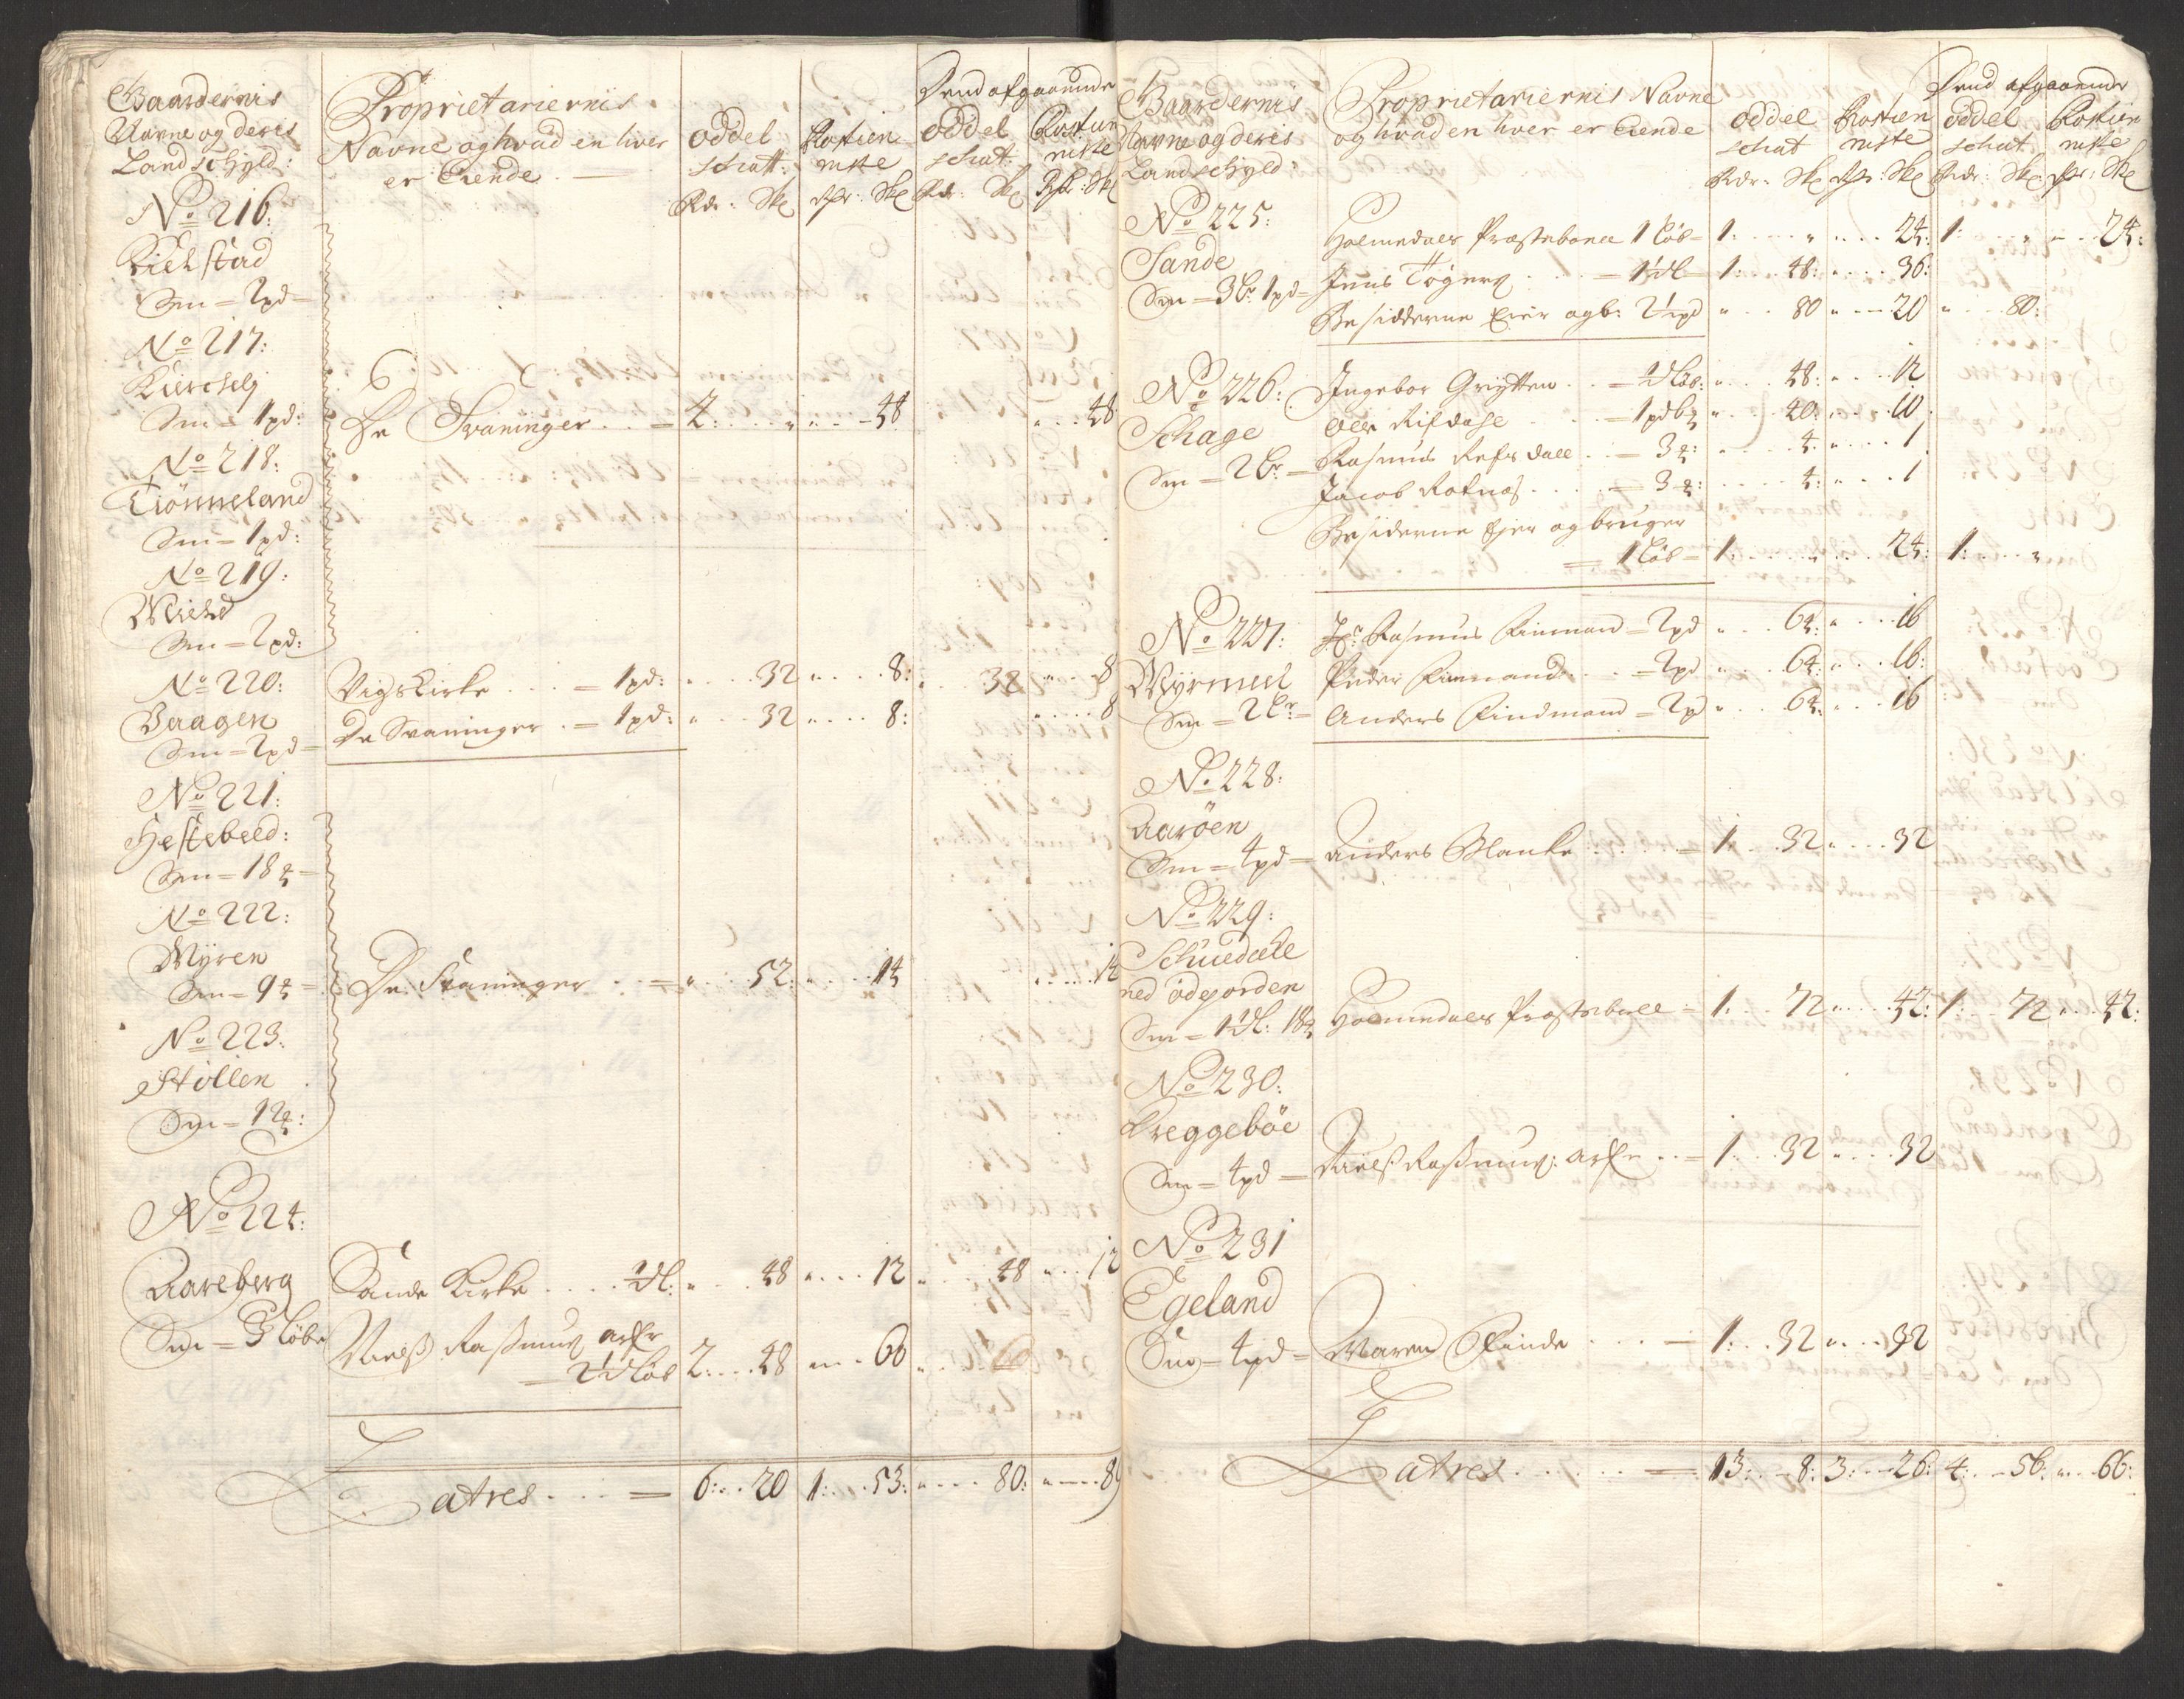 Gaardernis
Navne og deris
Landschyld:
Proprietariernis
Navne og hvad en hver
er Eiende
oddel
schatt:
Rdr: Sk
Rostien
niste
Rdr: Sk
Dend afgaaende
oddel
schat:
Rdr: Sk
Rostien
niste
Rdr: Sk
No 216:
Kielstad
Sm = 2pd =
No 217:
Sm = 1pd:
De Svaninger = 2: " " 48 " 48
No 218:
Tiønneland
Sm = 1pd:
No 219:
Mield
Sm = 2pd:
No 220:
Vaagen
Sm = 2pd =
Vigs Kirke = 1pd: " 32 " 8: " 32 " 8
De Svaninger = 1pd: " 32 " 8: " 8
No 221:
Hestebeld:
Sm = 18
No 222:
Myren
Sm = 9
De Svaninger = " 52: " 14 " 14
No 223:
Støllen
Sm = 12
No 224:
Aareberg
Sm = 3 løbe
Sande Kirke ½l: " 48 " 12 " 48 " 12
Nielß Raßmus: arfr
= 2½ løb 2: 48 " 60
Latres = 6: 20 1: 53: " 80: " 89
Gaardernis
Navne og deris
Landschyld:
Proprietariernis Navne
og hvad en hver er Eiende
oddel
schat
Rdr: Sk
Rostien
niste
Rdr: Sk
Dend afgaaende
oddel
schat
Rdr: Sk
Rostien
niste
Rdr: Sk
No 225:
Sande
Sm = 3 lr 1pd =
Holmedals Præstebord 1 løb = 1: " " 24: 1: " " 24:
Jens Tøgers = 1½l 1: 48: " 36:
Besidderne Eier og b: 2½pd " 80 " 20 " 80:
No 226:
Schage
Sm = 2 lr =
Ingebor Grytten = ½ løb: " 48: " 12
= 1pd " 40: " 10
Rasmus Refsdall = 3 4: " 1
Jacob = 3 4: " 1
Besiderne Ejer og bruger
= 1 løb = 1: " " 24: 1: "
No 227:
Myrmel
Sm = 2 lr =
Hr: Rasmus Finmand = 2pd " 64: " 16
Peder Finmand = 2pd " 64: " 16:
Anders Findmand = 2pd " 64: " 16
No 228:
Aarøen
Sm = 4pd =
Anders Blanke = 1: 32 " 32
No 229:
ned ødegorden
Sm = 1½l: 18
Holmedals Præstebull = 1: 72 " 42: 1: 72 " 42:
No 230:
Kreggebøe
Sm = 4pd =
Nielß Raßmus: arfr = 1: 32 " 32
No 231
Egeland
Sm = 4pd =
Maren Finde = 1: 32 " 32
Latres = 13: 8: 3: 26: 4: 56: " 66: